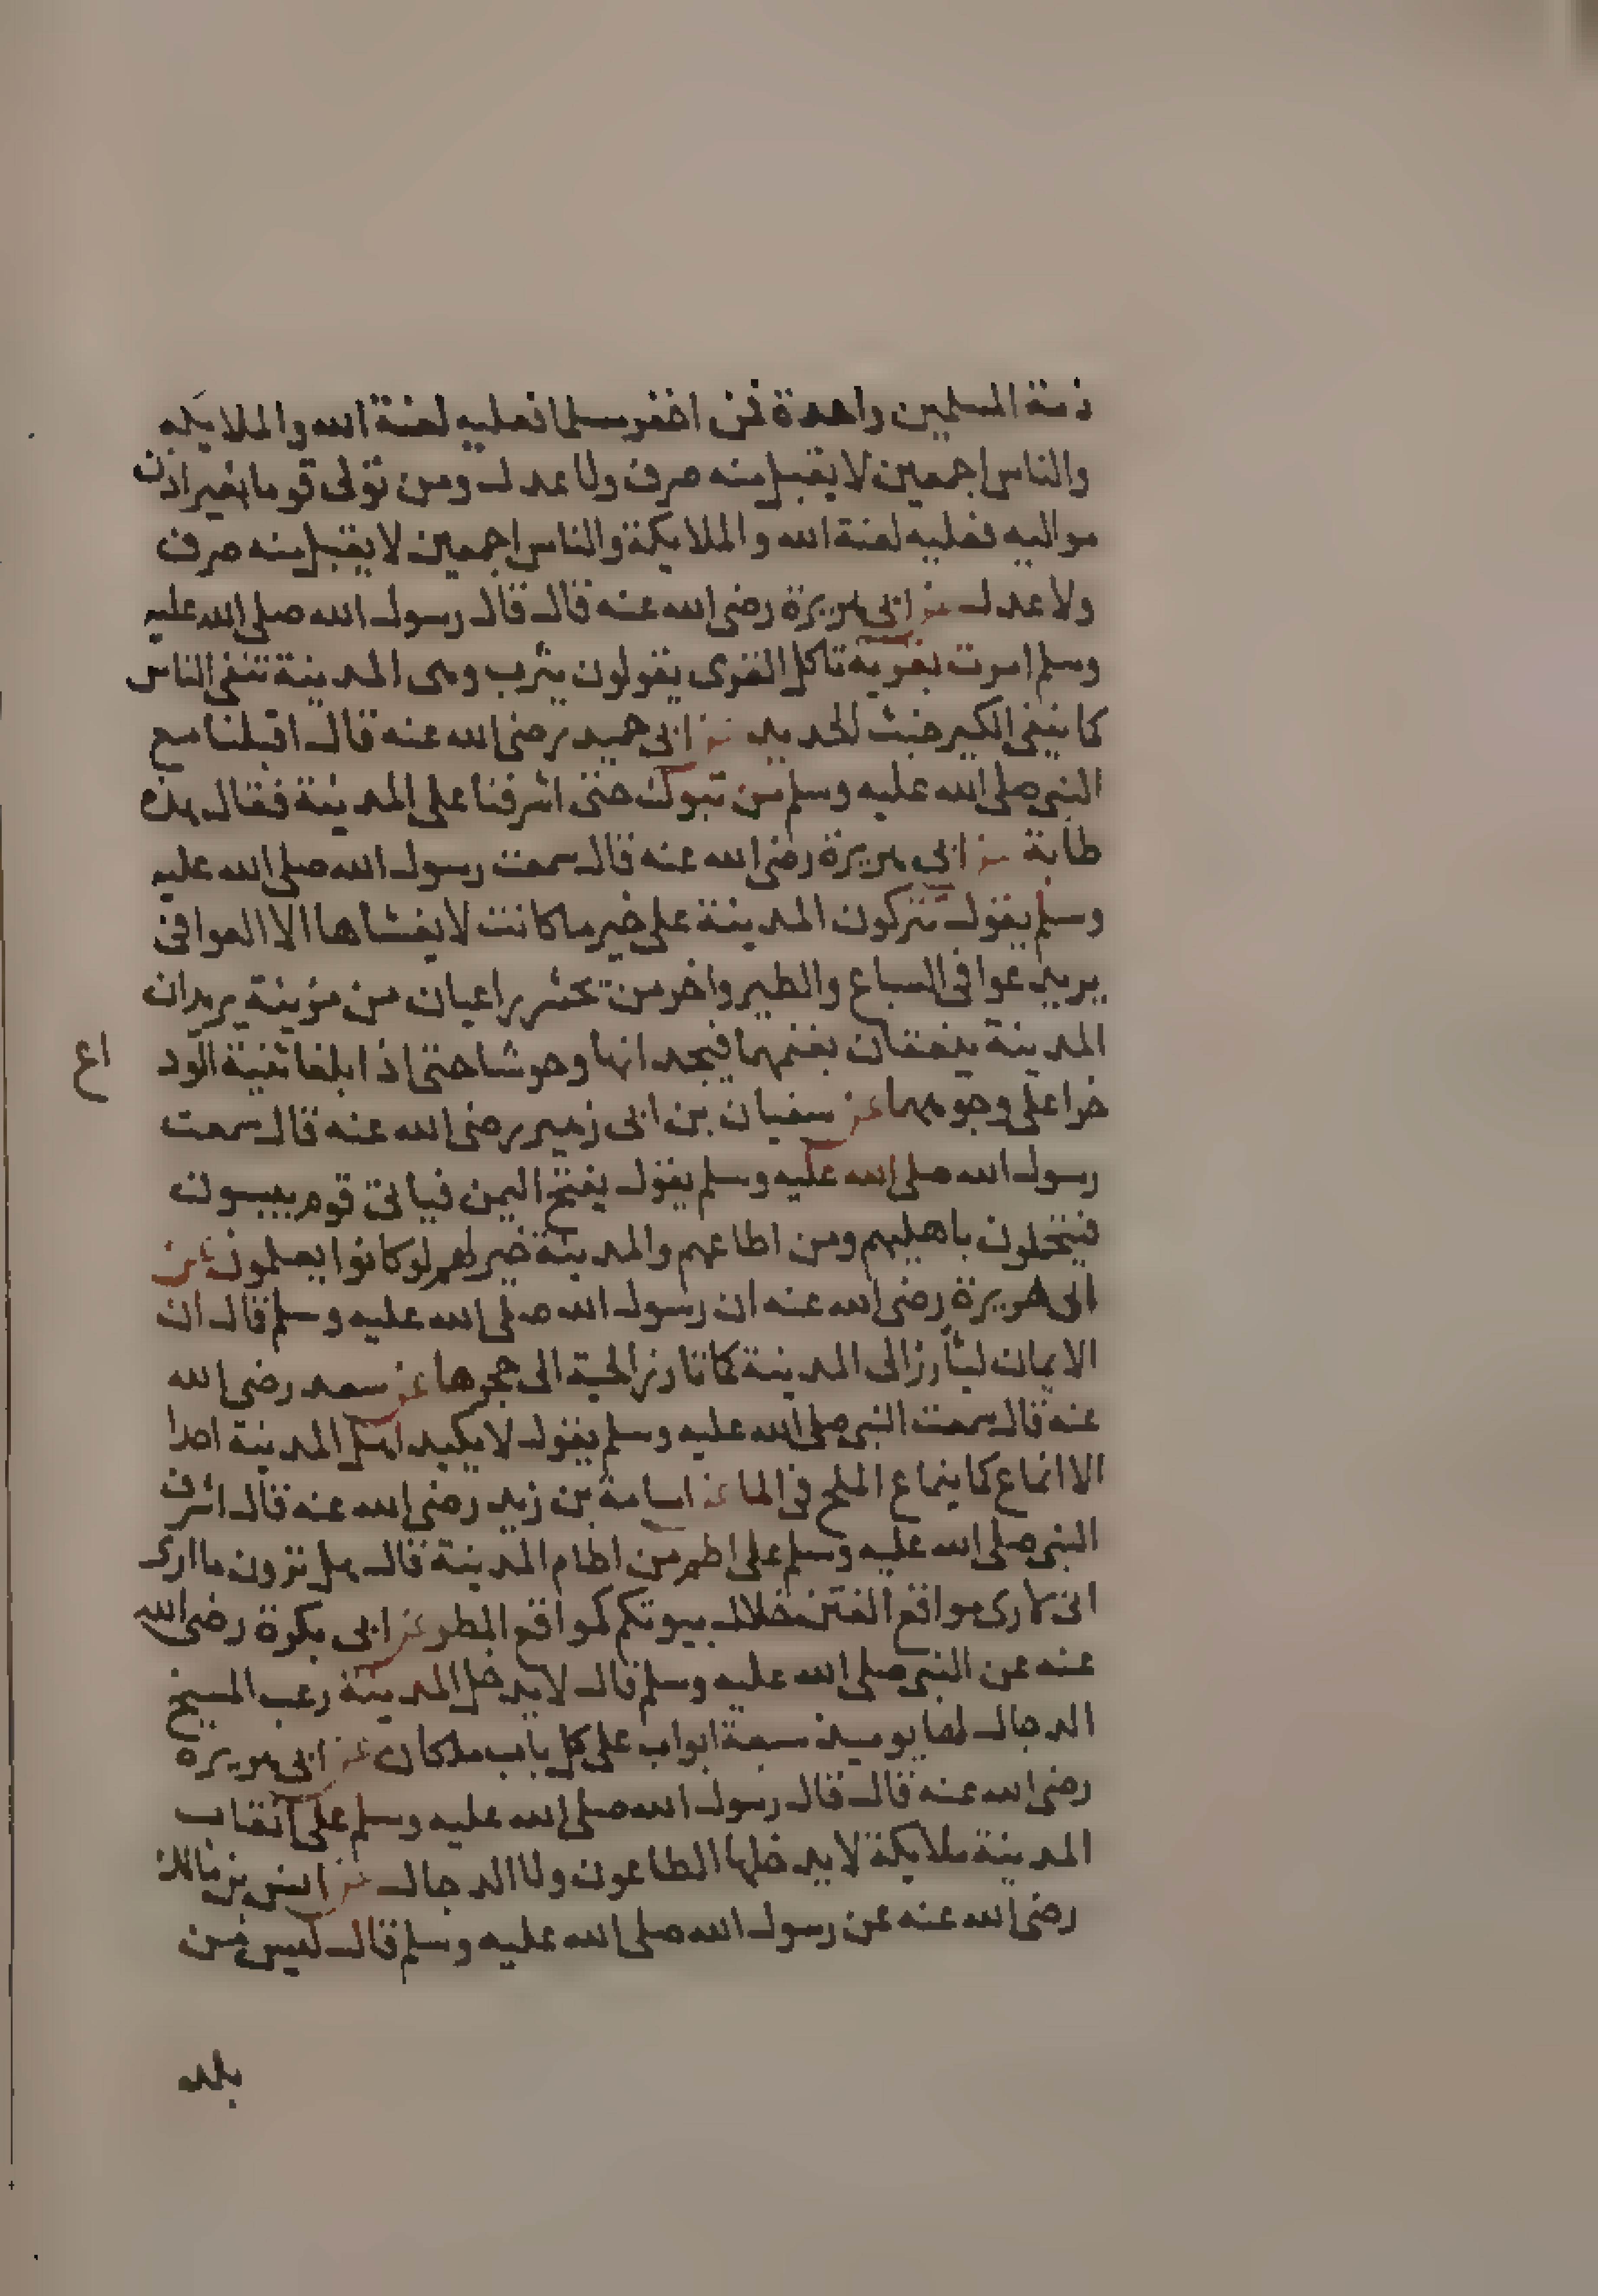 ذمة المسلمين واحدة فمن اخفر مسلما فعليه لعنة الله والملايكه
والناس اجمعين لا يقبل منه صرف ولا عدل ومن تولى قوما بغير اذن
مواليه فعليه لعنة الله والملايكة والناس اجمعين لا يقبل منه صرف
ولا عدل عن ابى هريرة رضى الله عنه قال قال رسول الله صلى الله عليه
وسلم امرت بقرية تاكل القرى يقولون يثرب وهى المدينة تنفى الناس
كما ينفى الكير خبث الحديد عن ابى حميد رضى الله عنه قال اقبلنا مع
النبى صلى الله عليه وسلم من تبوك حتى اشرفنا على المدينة فقال هذه
طابة عن ابى هريرة رضى الله عنه قال سمعت رسول الله صلى الله عليه
وسلم يقول تتركون المدينة على خير ما كانت لا يغشاها الا العوافى
يريد عوافى السباع والطير واخر من تحشر راعيان من مزينة يريدان
المدينة ينعقان بغنمهما فيجدانها وحوشا حتى اذا بلغا ثنية الود
اع
خرا على وجوههما عن سفيان بن ابى زهير رضى الله عنه قال سمعت
رسول الله صلى الله عليه وسلم يقول يفتح اليمن فياتى قوم يبسون
فيتحملون باهليهم ومن اطاعهم والمدينة خير لهم لو كانوا يعلمون عن
ابى هريرة رضى الله عنه ان رسول الله صلى الله عليه وسلم قال ان
الايمان ليأرز الى المدينة كما تارز الحية الى جحرها عن سعد رضى الله
عنه قال سمعت النبى صلى الله عليه وسلم يقول لا يكيد اهل المدينة احدا
الا انماع كما ينماع الملح فى الما عن اسامة بن زيد رضى الله عنه قال اشرف
النبى صلى الله عليه وسلم على اطم من اطام المدينة قال هل ترون ما ارى
انى لارى مواقع الفتن خلال بيوتكم كمواقع المطر عن ابى بكرة رضى الله
عنه عن النبى صلى الله عليه وسلم قال لا يدخل المدينة رعب المسيح
الدجال لها يوميذ سبعة ابواب على كل باب ملكان عن ابى هريره
رضى الله عنه قال قال رسول الله صلى الله عليه وسلم على انقاب
المدينة ملايكة لا يدخلها الطاعون ولا الدجال عن انس بن مالك
رضى الله عنه عن رسول الله صلى الله عليه وسلم قال ليس من
بلد